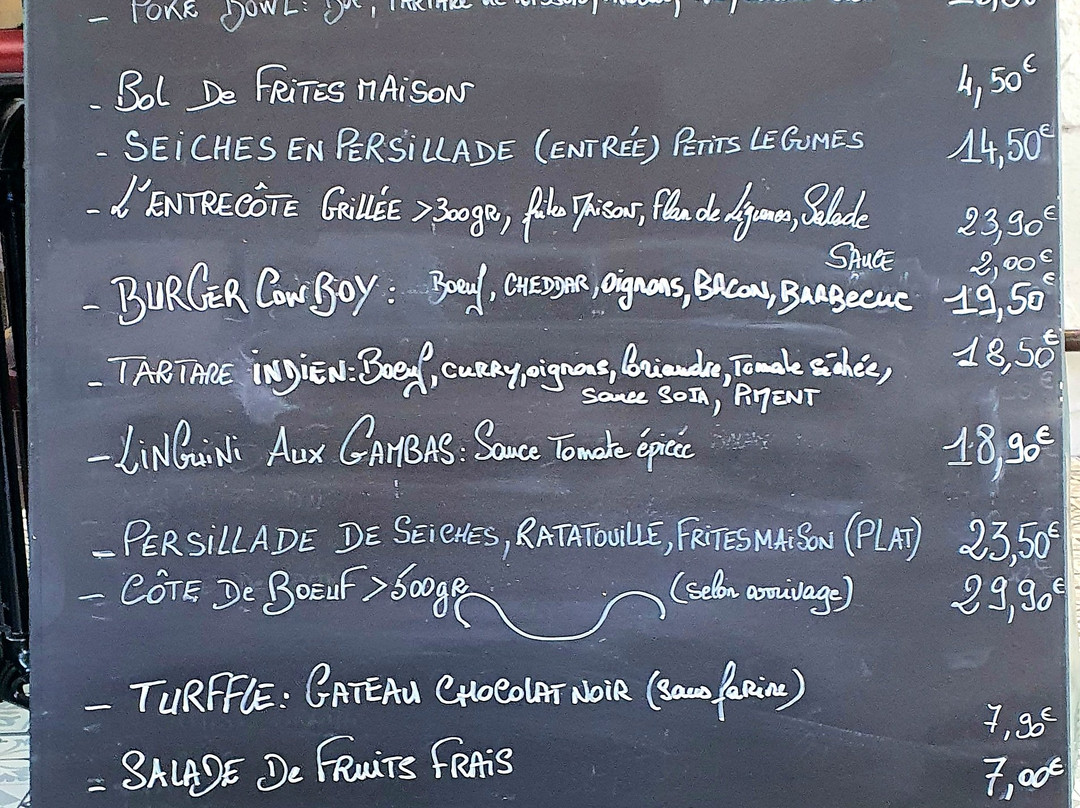 - POKE BOWL:
- BOL DE FRITES MAISON 4,50€
- SEICHES EN PERSILLADE (ENTRÉE) PETITS LEGUMES 14,50€
- L'ENTRECÔTE GRILLÉE >300gR, frites MAISON, Flan de Légumes, Salade 23,90€
SAUCE 2,00€
- BURGER COWBOY: Boeuf, CHEDDAR, oignons, BACON, BARBECUE 19,50€
- TARTARE INDIEN: Boeuf, CURRY, oignons, Coriandre, Tomate séchée, 18,50€
sauce SOJA, PIMENT
- LINGUINI AUX GAMBAS: Sauce Tomate épicée 18,90€
- PERSILLADE DE SEICHES, RATATOUILLE, FRITES MAISON (PLAT) 23,50€
- CÔTE DE BOEUF >500gR (selon arrivage) 29,90€
- TURFFLE: GATEAU CHOCOLAT NOIR (sans farine) 7,90€
- SALADE DE FRUITS FRAIS 7,00€